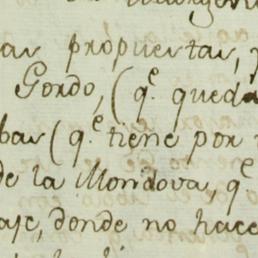 propuertar,
Gordo, (q.ᵉ queda
bar (q.ᵉ tiene por
de la Mondova, q.ᵉ
aje, donde no hace